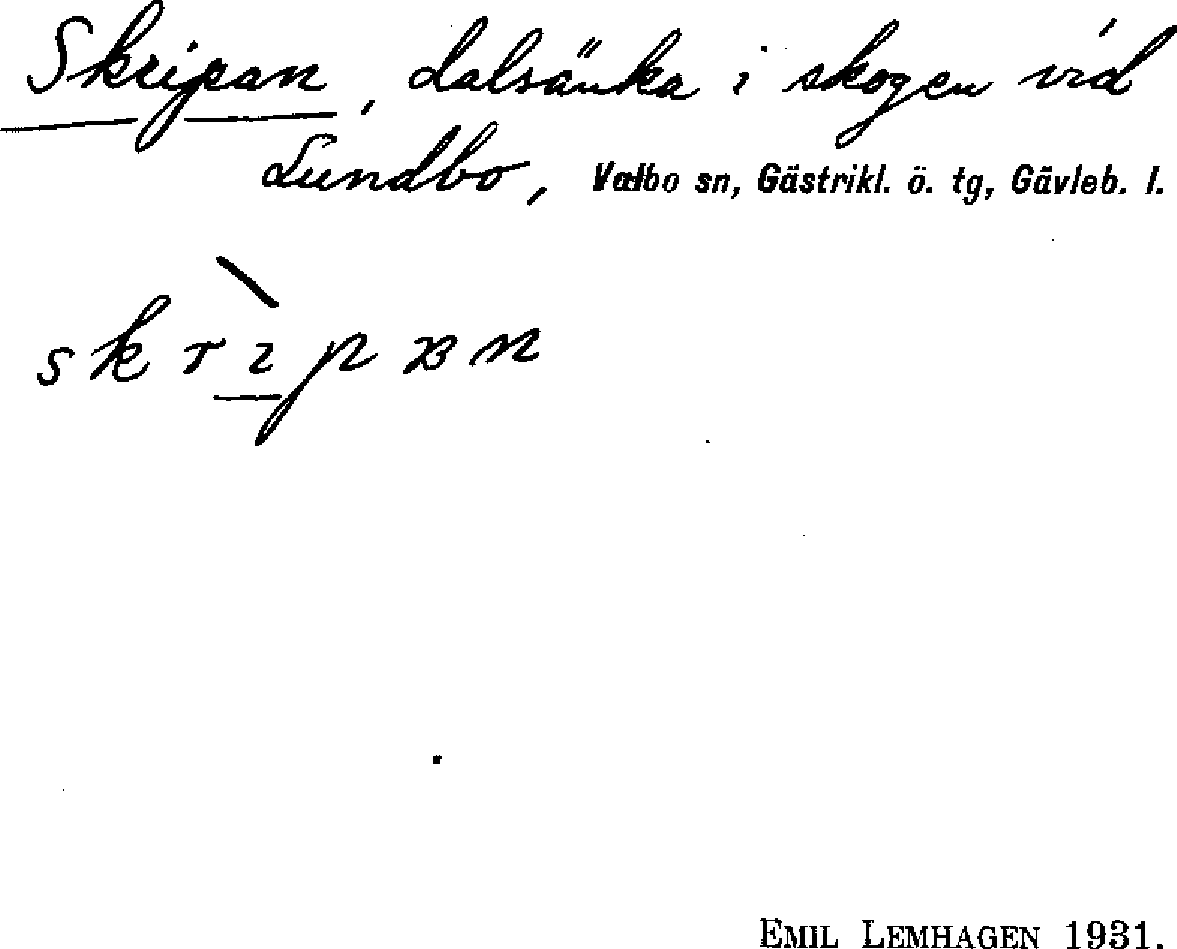 Skripan, dalsänka i skogen vid
Lundbo, Valbo sn, Gästrikl. ö. tg, Gävleb. l.
skrìpɐn
EMIL LEMHAGEN 1931.